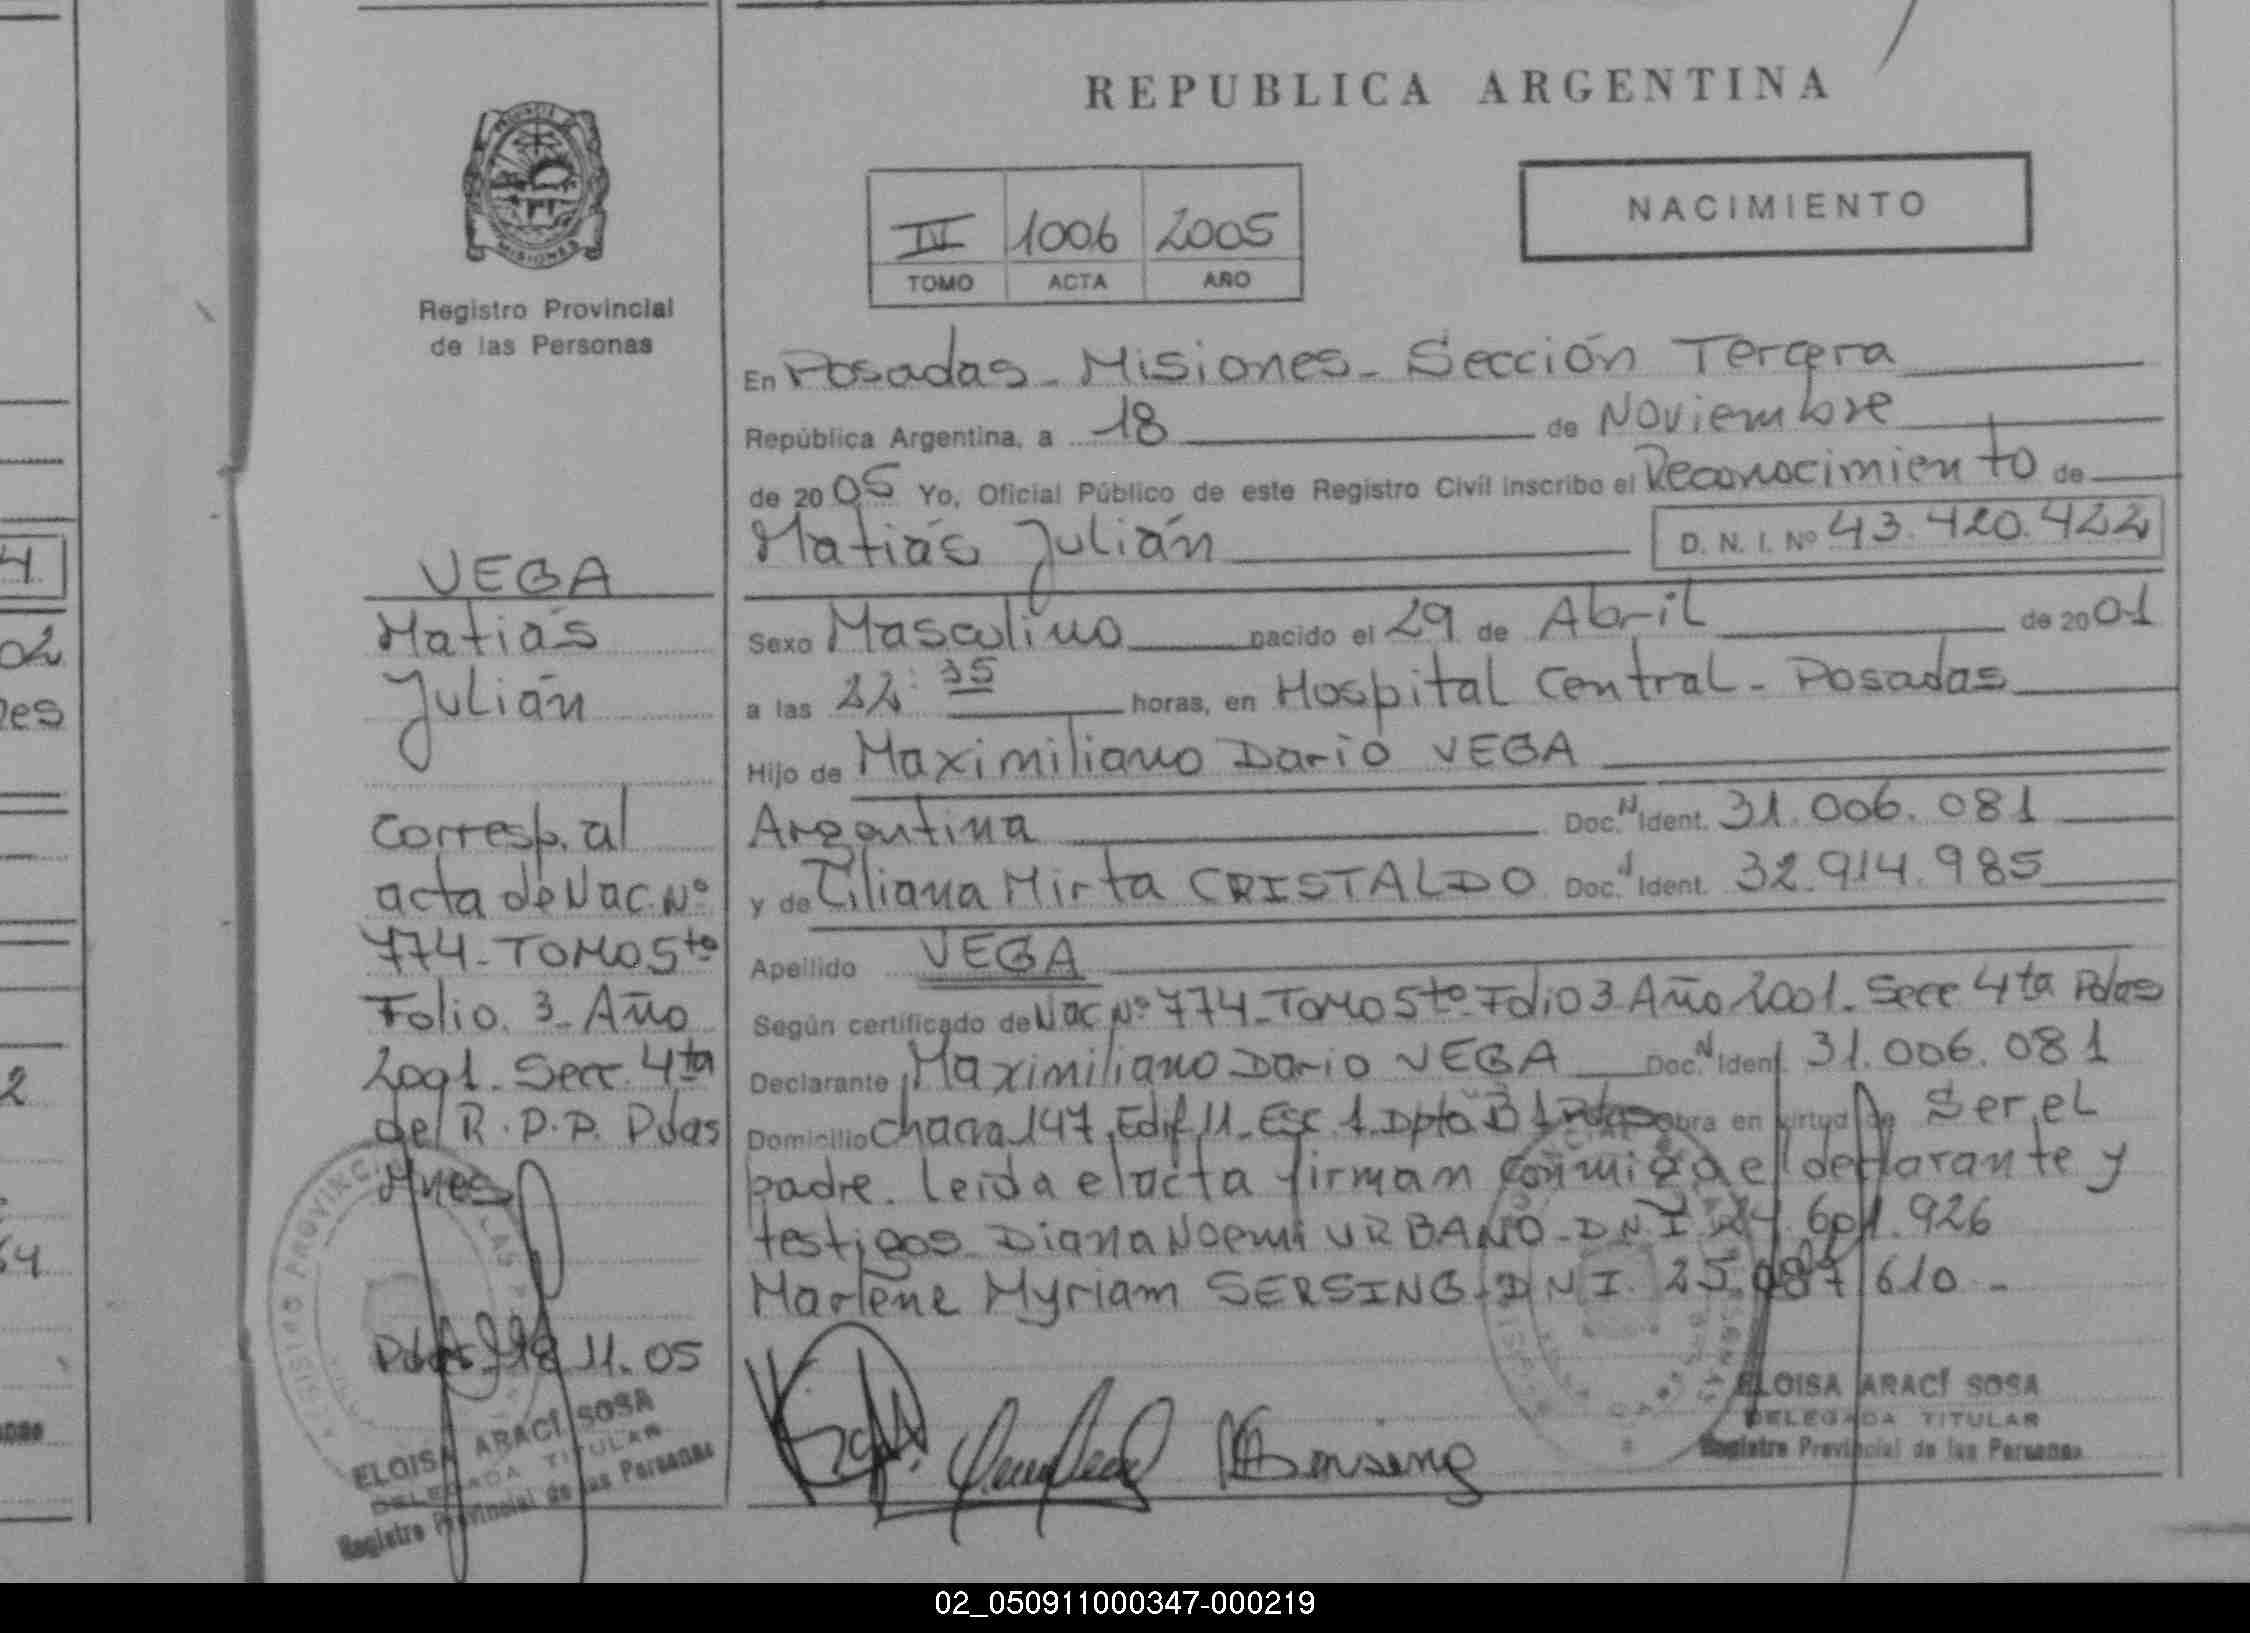 REPUBLICA ARGENTINA
Registro Provincial
de las Personas
IV 1006 2005
TOMO ACTA AÑO
NACIMIENTO
VEGA
Matías
Julián
Corresp. al
acta de Nac. Nº
774 - TOMO 5to
Folio. 3 - Año
2001. Secc. 4ta
del R.P.P. Pdas
Mnes
Pdas. 18.11.05
ELOISA ARACÍ SOSA
DELEGADA TITULAR
Registro Provincial de las Personas
En Posadas - Misiones - Sección Tercera
República Argentina, a 18 de Noviembre
de 2005 Yo, Oficial Público de este Registro Civil inscribo el Reconocimiento de
Matías Julián D. N. I. Nº 43.420.422
Sexo Masculino nacido el 29 de Abril de 2001
a las 22:35 horas, en Hospital Central - Posadas
Hijo de Maximiliano Dario VEGA
Argentina Doc. N Ident. 31.006.081
y de Liliana Mirta CRISTALDO Doc. N Ident. 32.914.985
Apellido VEGA
Según certificado de Nac Nº 774 - TOMO 5to - Folio 3 - Año 2001 - Secc 4ta Pdas
Declarante Maximiliano Dario VEGA Doc. N Ident. 31.006.081
Domicilio chacra 147 Edif 11 - Esc. 1 - Dpto B 1 Pdas obra en virtud de Ser el
padre. Leida el acta firman conmigo el declarante y
testigos Diana Noemi URBANO - D N I 24.601.926
Marlene Myriam SERSING - D N I. 25.087.610 -
ELOISA ARACÍ SOSA
DELEGADA TITULAR
Registro Provincial de las Personas
02_050911000347-000219